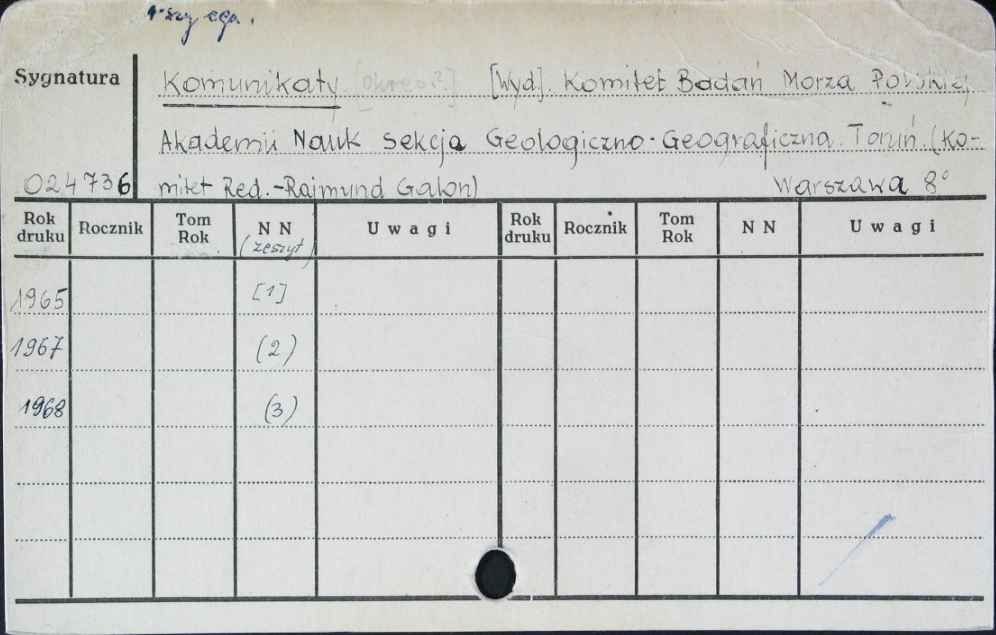 1-szy egz.
Sygnatura
Komunikaty [Wyd]. Komitet Badań Morza Polskiej
Akademii Nauk Sekcja Geologiczno-Geograficzna. Toruń (Ko-
024736 mitet Red.-Rajmund Galon) Warszawa 8°
Rok druku Rocznik Tom Rok N N (zeszyt) Uwagi Rok druku Rocznik Tom Rok N N Uwagi
1965 [1]
1967 (2)
1968 (3)